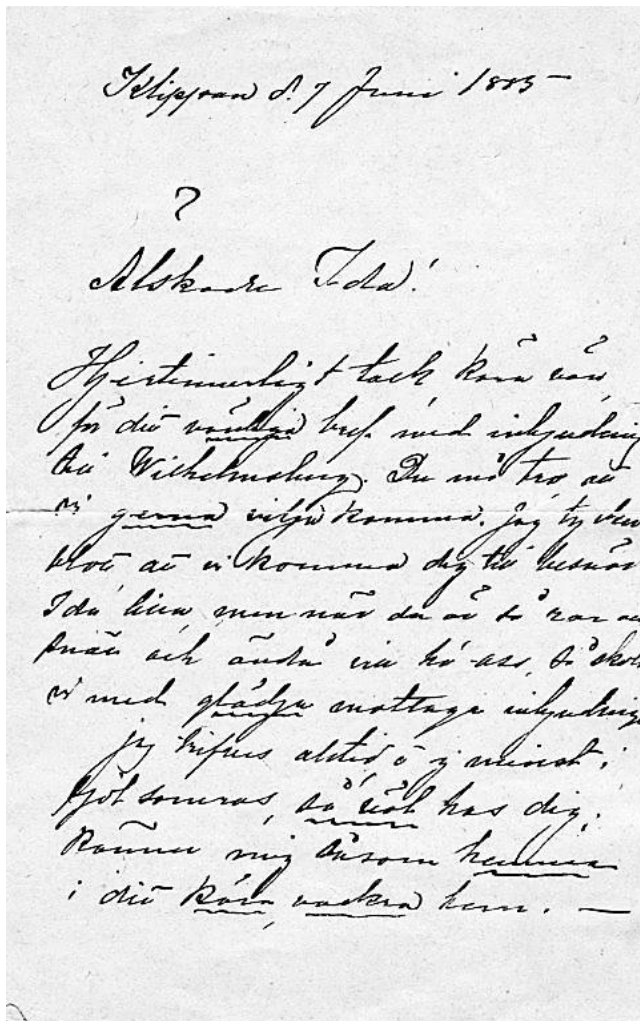 Klippan d. 7 Juni 1885
?
Älskade Ida!
Hjertinnerligt tack kära vän,
för ditt vänliga bref med inbjudning
till Wilhelmsberg. Du må tro att
vi gerna vilja komma. Jag tycker
blott att vi komma dig till besvär
Ida lilla, men när du är så rar och
snäll och ändå vill ha oss, så skola
vi med glädje mottaga
jag trifves alltid o ej minst i
fjol somras, så väl hos dig,
känner mig såsom hemma
i ditt kära, vackra hem. —